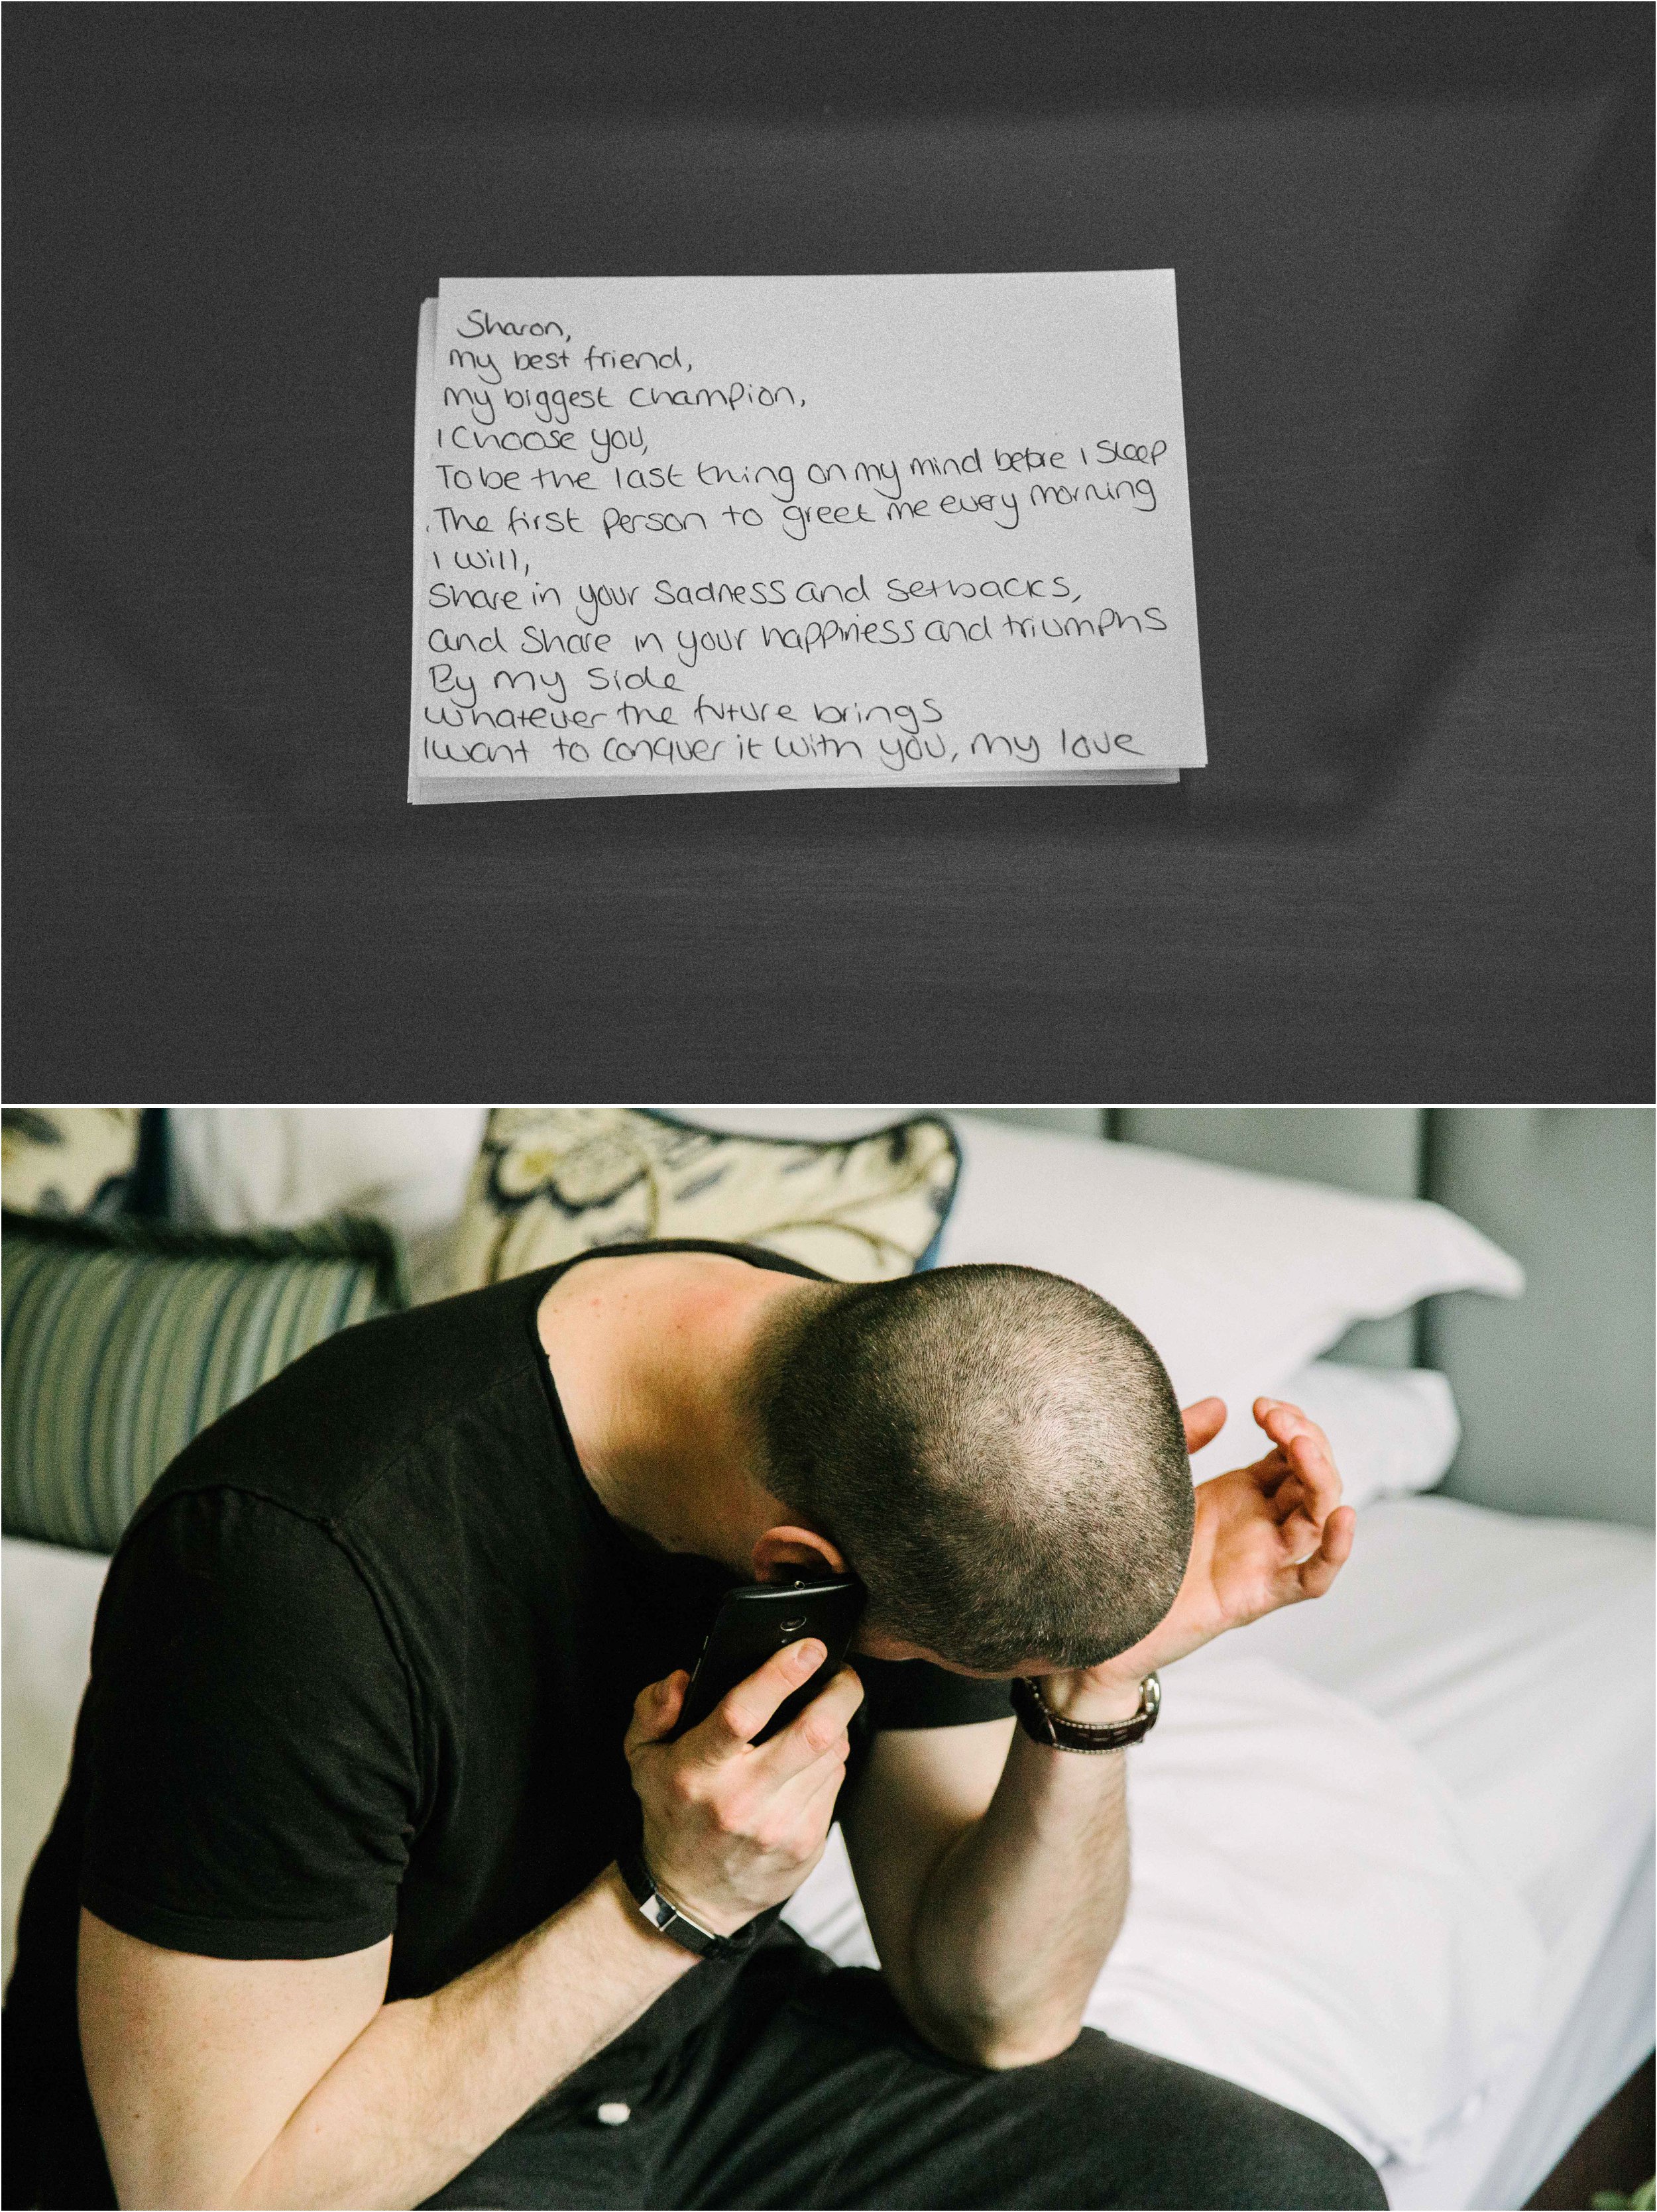 Sharon,
my best friend,
my biggest champion,
I choose you,
To be the last thing on my mind before I sleep
.The first person to greet me every morning
I will,
Share in your sadness and setbacks,
and share in your happiness and triumphs
By my side
whatever the future brings
I want to conquer it with you, my love